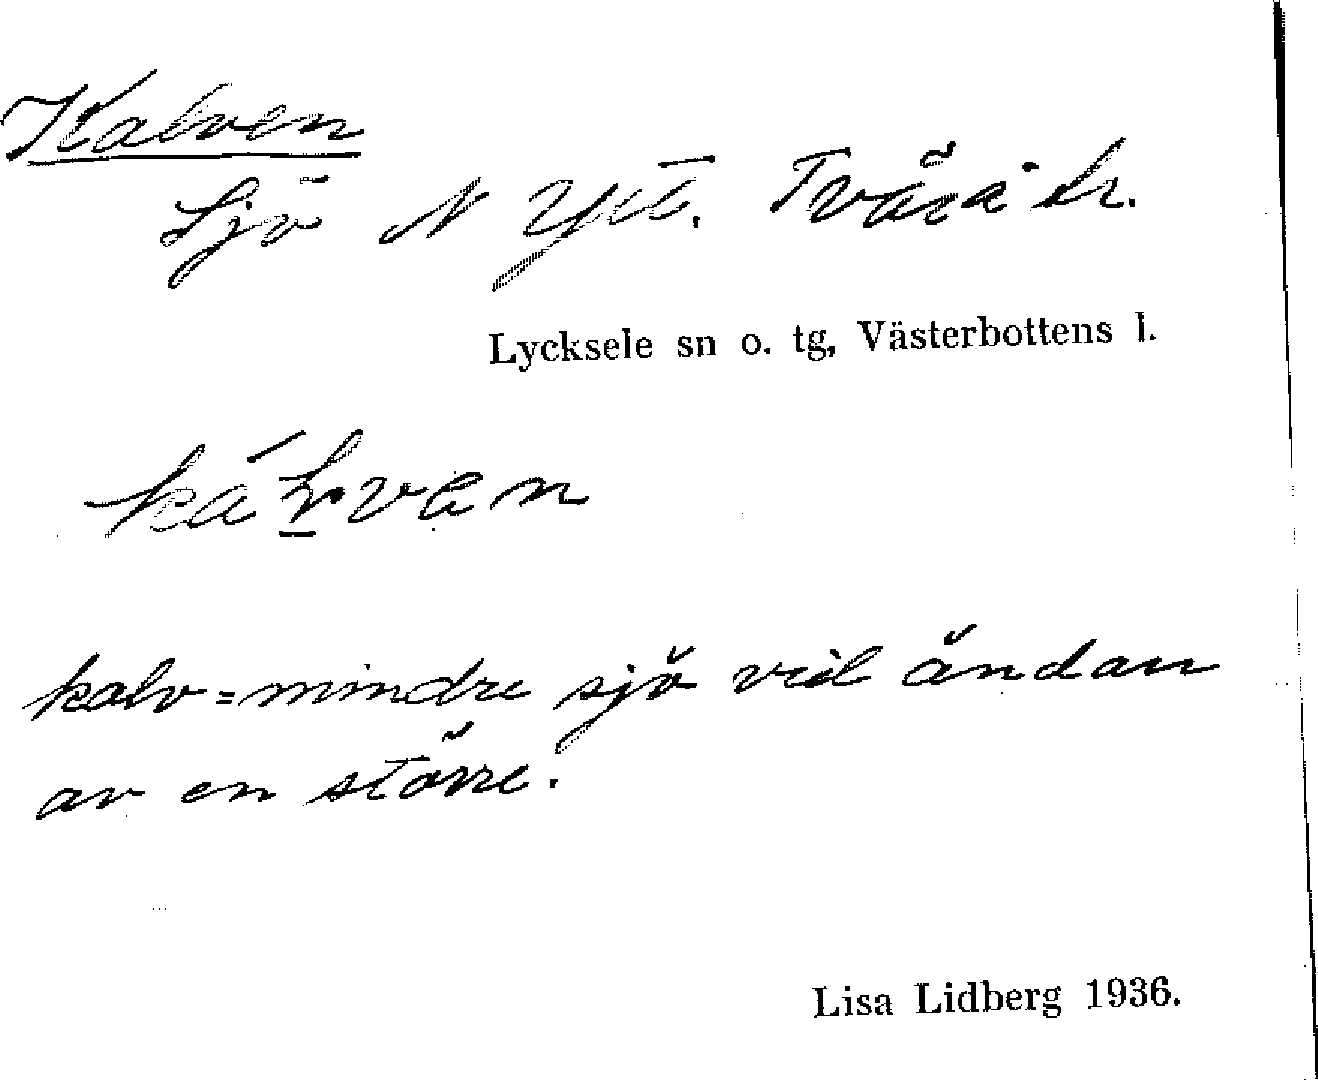 Kalven
Sjö N Ytt. Tväråtr.
Lycksele sn o. tg, Västerbottens l.
kalv = mindre sjö vid ändan
av en större.
Lisa Lidberg 1936.